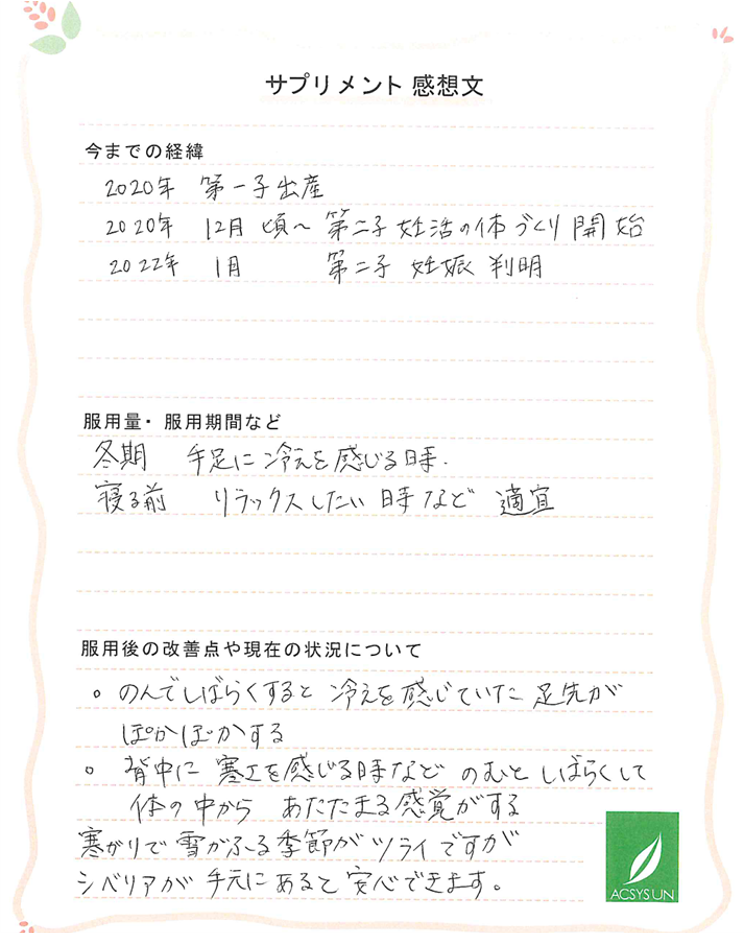 サプリメント 感想文
今までの経緯
2020年 第一子出産
2020年 12月 頃〜 第二子 妊活の体づくり 開始
2022年 1月 第二子 妊娠 判明
服用量・服用期間など
冬期 手足に冷えを感じる時.
寝る前 リラックスしたい 時など 適宜
服用後の改善点や現在の状況について
○ のんでしばらくすると 冷えを感じていた 足先が
ぽかぽかする
○ 背中に 寒さを感じる時など のむと しばらくして
体の中から あたたまる感覚がする
寒がりで 雪がふる季節が ツライですが
シベリアが 手元にあると 安心できます。
ACSYSUN